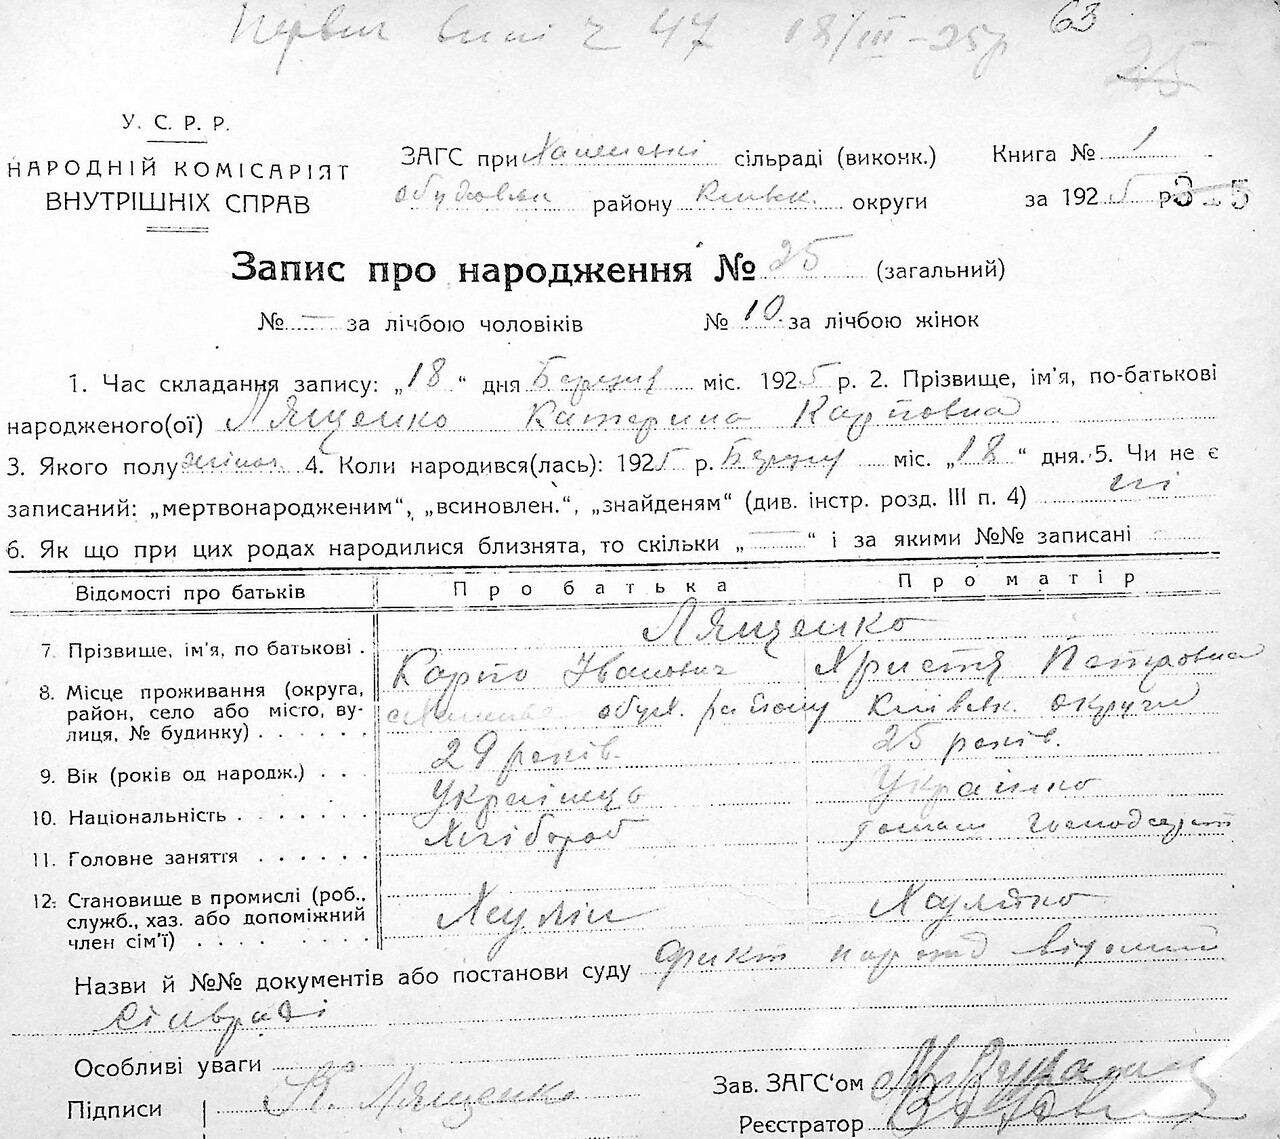 63
47 18/III-25р
25
У. С. Р. Р.
НАРОДНІЙ КОМІСАРІЯТ
ВНУТРІШНІХ СПРАВ
ЗАГС при сільраді (виконк.) Книга № 1
району Київськ. округи за 1925 р.
Запис про народження № 25 (загальний)
№ — за лічбою чоловіків № 10 за лічбою жінок
1. Час складання запису: „18“ дня Березня міс. 1925 р. 2. Прізвище, ім'я, по-батькові
народженого(ої) Лященко Катерина Карповна
3. Якого полу жіноч. 4. Коли народився(лась): 1925 р. Березня міс. „18“ дня. 5. Чи не є
записаний: „мертвонародженим“, „всиновлен.“, „знайденям“ (див. інстр. розд. III п. 4) ні
6. Як що при цих родах народилися близнята, то скільки „—“ і за якими №№ записані —
Відомості про батьків Про батька Про матір
7. Прізвище, ім'я, по батькові . Лященко
Карпо Іванович Христя Петровна
8. Місце проживання (округа, район, село або місто, вулиця, № будинку) . . . . . . району Київськ. округи
9. Вік (років од народж.) . . . 29 років. 25 років.
10. Національність . . . . . . . Українець Українка
11. Головне заняття . . . . . . Хлібороб
12. Становище в промислі (роб., служб., хаз. або допоміжний член сім'ї) . . . . . . . . Хазяїн Хазяйка
Назви й №№ документів або постанови суду факт народ відомий
сільраді
Особливі уваги
Підписи К. Лященко
Зав. ЗАГС'ом
Реєстратор